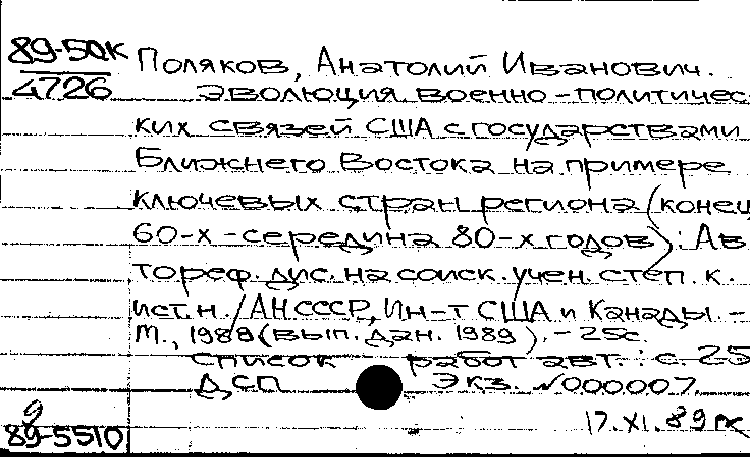 89-5ак
4726
Поляков, Анатолий Иванович.
Эволюция военно-политичес-
ких связей США с государствами
Ближнего Востока на примере
ключевых стран региона (конец
60-х - середина 80-х годов): Ав
тореф. дис. на соиск. учен. степ. к.
ист. н. / АН СССР, Ин-т США и Канады. -
М., 1989 (вып. дан. 1989). - 25с.
Список работ авт.: с. 25
ДСП Экз. №000007.
17.XI.89
д
89-5510